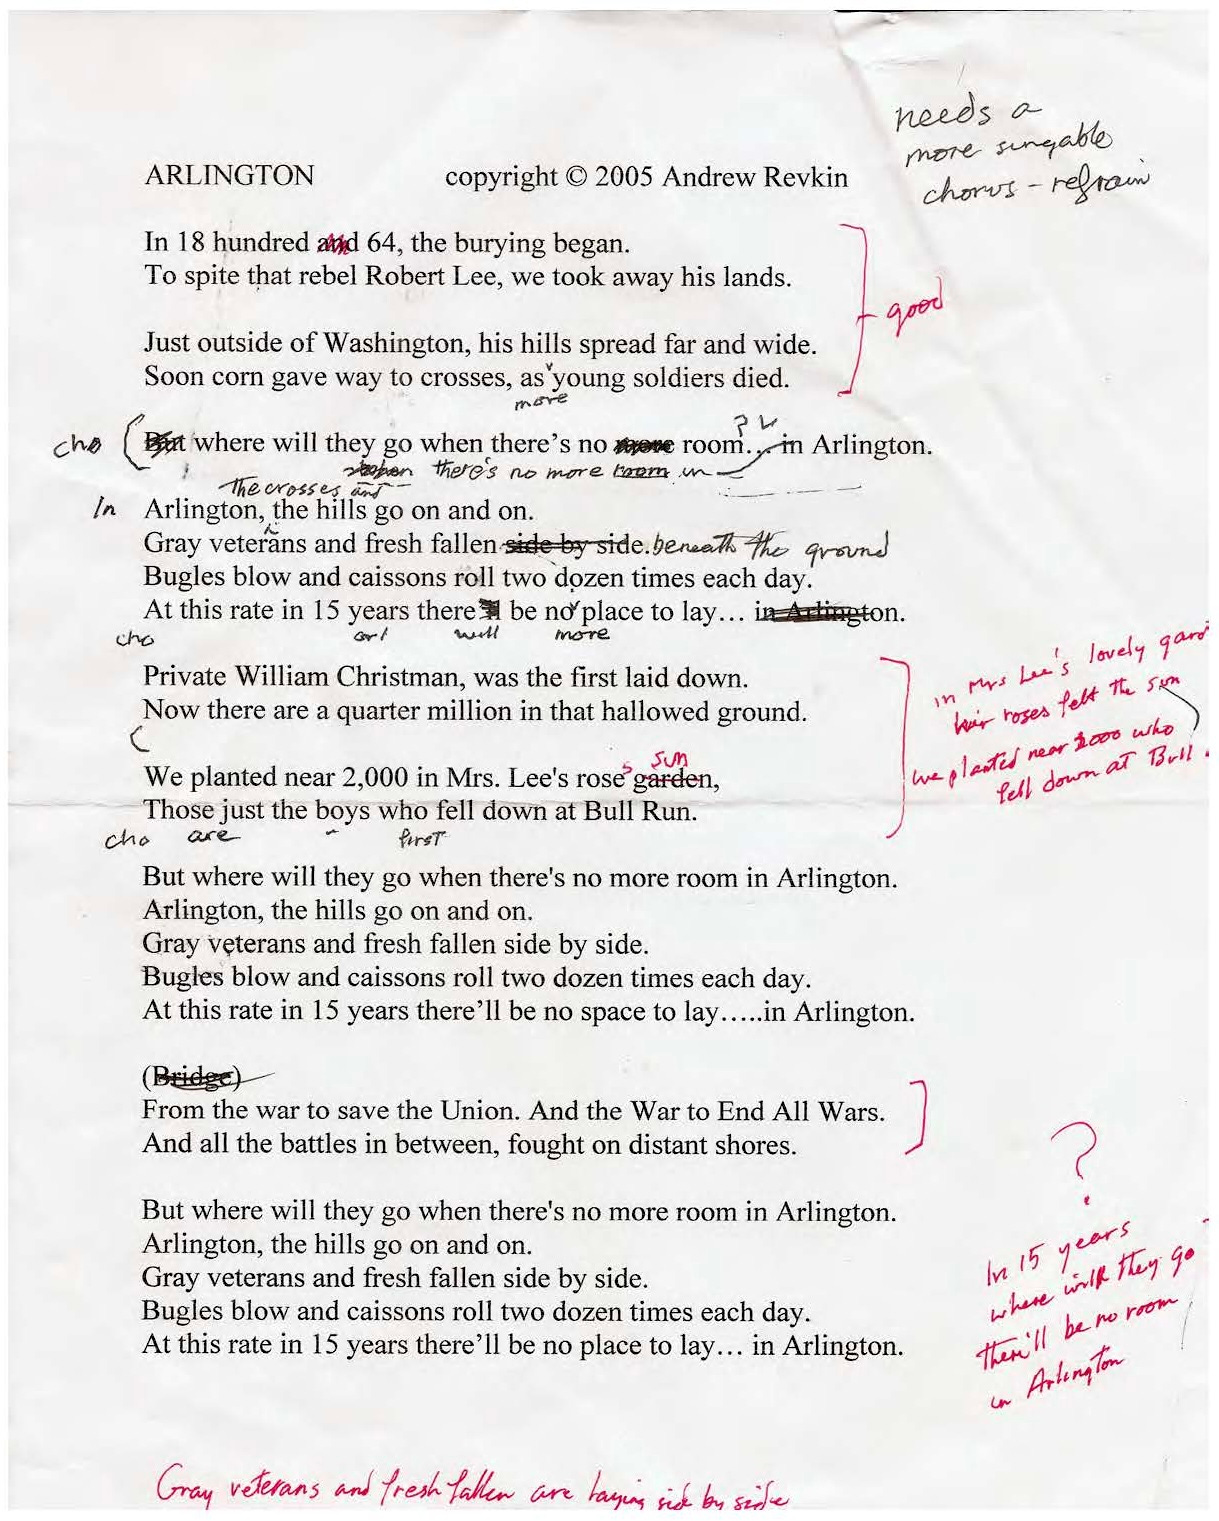 needs a
more singable
chorus - refrain
ARLINGTON copyright © 2005 Andrew Revkin
In 18 hundred and 64, the burying began.
To spite that rebel Robert Lee, we took away his lands.
good
Just outside of Washington, his hills spread far and wide.
Soon corn gave way to crosses, as young soldiers died.
more
? ✓
cho ( But where will they go when there's no more room... in Arlington.
there's no more room in
The crosses and
In Arlington, the hills go on and on.
Gray veterans and fresh fallen side by side. beneath the ground
Bugles blow and caissons roll two dozen times each day.
At this rate in 15 years there'll be no place to lay... in Arlington.
cho or will more
Private William Christman, was the first laid down.
Now there are a quarter million in that hallowed ground.
in Mrs Lee's lovely gard
her roses felt the sun
we planted near 2000 who
fell down at Bull
s sun
We planted near 2,000 in Mrs. Lee's rose garden,
Those just the boys who fell down at Bull Run.
cho are first
But where will they go when there's no more room in Arlington.
Arlington, the hills go on and on.
Gray veterans and fresh fallen side by side.
Bugles blow and caissons roll two dozen times each day.
At this rate in 15 years there'll be no space to lay.....in Arlington.
(Bridge)
From the war to save the Union. And the War to End All Wars.
And all the battles in between, fought on distant shores.
?
But where will they go when there's no more room in Arlington.
Arlington, the hills go on and on.
Gray veterans and fresh fallen side by side.
Bugles blow and caissons roll two dozen times each day.
At this rate in 15 years there'll be no place to lay... in Arlington.
In 15 years
where will they go
there'll be no room
in Arlington
Gray veterans and fresh fallen are laying side by side